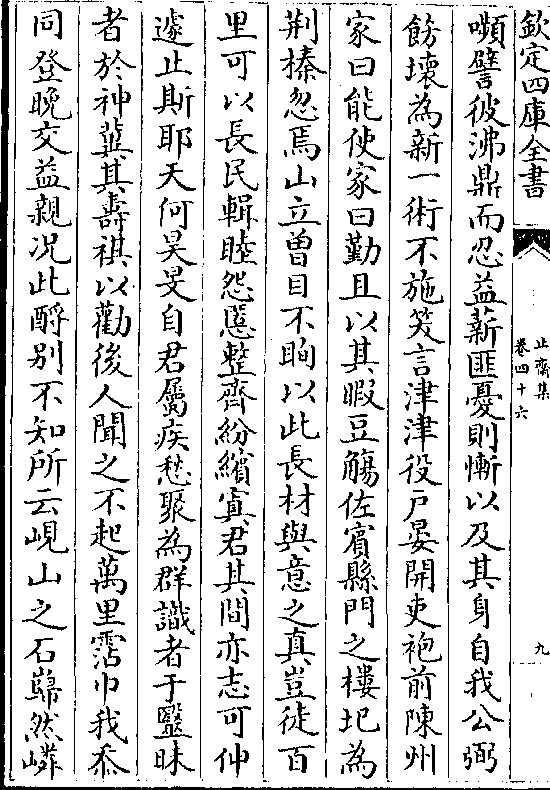 欽定四庫全書
止齋集
卷四十六
九
嚬譬彼沸鼎而忍益薪匪憂則慚以及其身自我公弼
飭壞為新一術不施笑言津津役戸晏開吏袍前陳州
家曰能使家曰勤且以其暇豆觴佐賓縣門之樓圯為
荆榛忽焉山立曽目不眴以此長材與意之真豈徒百
里可以長民輯睦怨慝整齊紛繽寘君其間亦志可伸
遽止斯耶天何昊旻自君屬疾愁聚為群識者于毉昧
者於神冀其壽祺以勸後人聞之不起萬里霑巾我忝
同登晚交益親况此酹别不知所云峴山之石巋然嶙